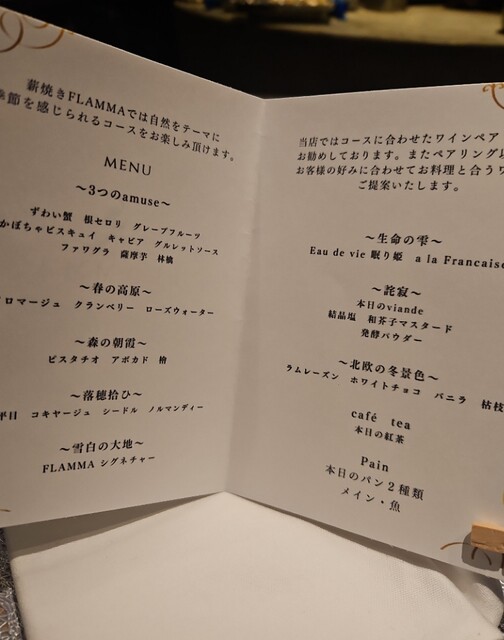 薪焼きFLAMMAでは自然をテーマに
季節を感じられるコースをお楽しみ頂けます。
MENU
～3つのamuse～
ずわい蟹 根セロリ グレープフルーツ
かぼちゃビスキュイ キャビア グルレットソース
ファワグラ 薩摩芋 林檎
～春の高原～
ロマージュ クランベリー ローズウォーター
～森の朝霞～
ピスタチオ アボカド 檜
～落穂拾ひ～
平目 コキヤージュ シードル ノルマンディー
～雪白の大地～
FLAMMA シグネチャー
当店ではコースに合わせたワインペア
お勧めしております。またペアリング以
お客様の好みに合わせてお料理と合うワ
ご提案いたします。
～生命の雫～
Eau de vie 眠り姫 a la Francaise
～詫寂～
本日のviande
結晶塩 和芥子マスタード
発酵パウダー
～北欧の冬景色～
ラムレーズン ホワイトチョコ バニラ 枯枝
café tea
本日の紅茶
Pain
本日のパン２種類
メイン・魚